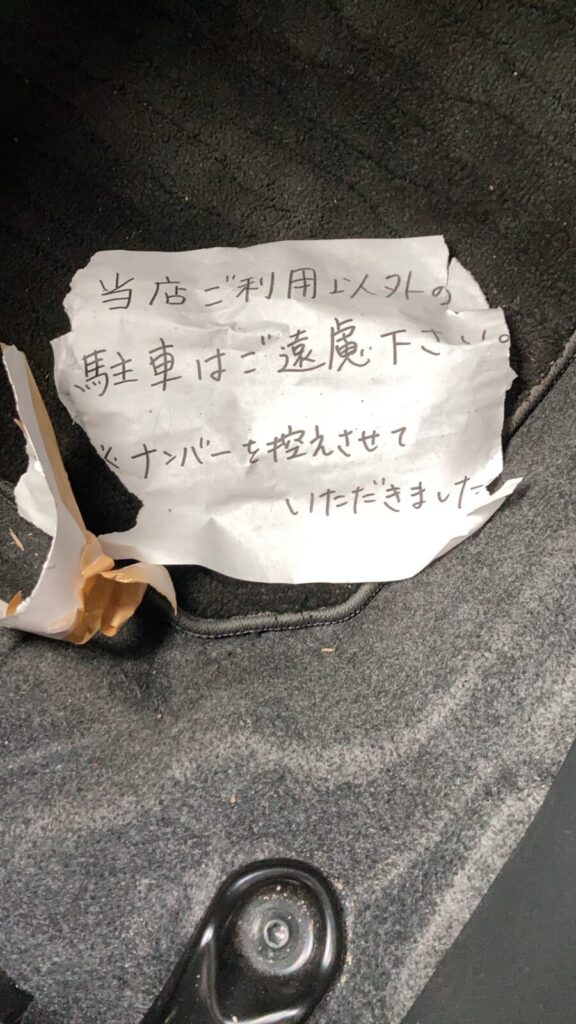 当店ご利用以外の
駐車はご遠慮下さい。
※ナンバーを控えさせて
いただきました